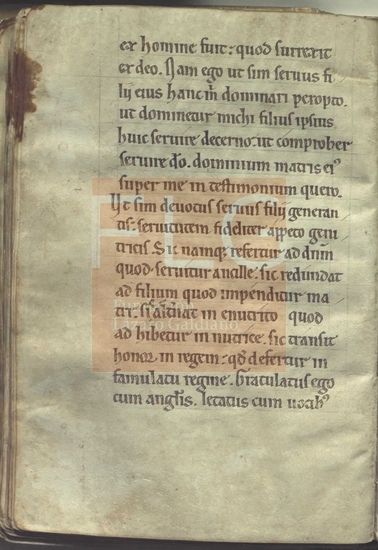 ex homine fuit: quod surrexit
ex deo. Nam ego ut sim seruus fi
lii eius hanc m̄ dominari peropto.
ut dominetur michi filius ipsius
huic seruire decerno: ut comprober
seruire dō. dominium matris eiꝰ
super me in testimonium quero.
Ut sim deuotus seruus filii generan
tis: seruitutem fideliter appeto geni
tricis. Sic namqꝫ refertur ad dn̄m
quod seruitur ancille: sic redundat
ad filium quod impenditur ma
tri: si transit in enutrito quod
ad hibetur in nutrice. sic transit
honor in regem: qd̄ defertur in
famulatu regine. Iaculatus ego
cum angl̄is. letatus cum uocibꝰ
Galdiano